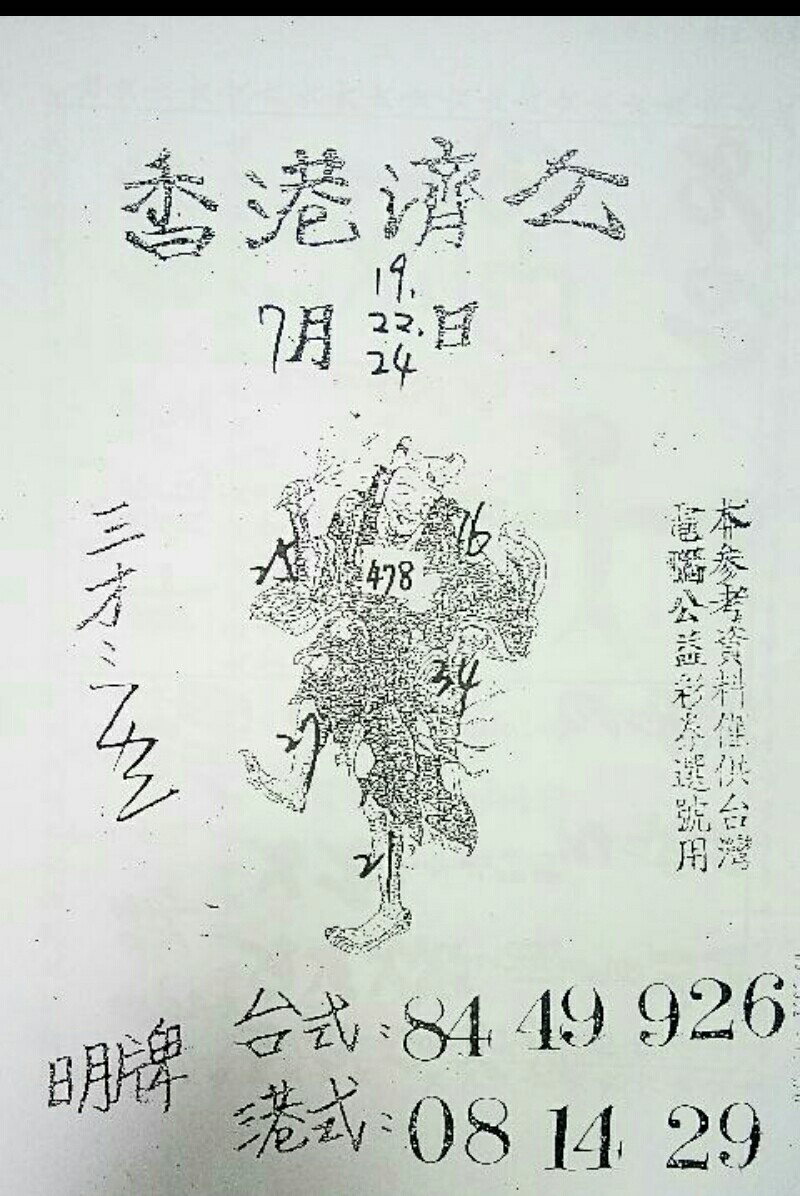 香港濟公
7月19.22.24日
三才:
本參考資料僅供台灣
電腦公益彩券選號用
25
16
478
34
27
21
明牌
台式:84 49 926
港式:08 14 29